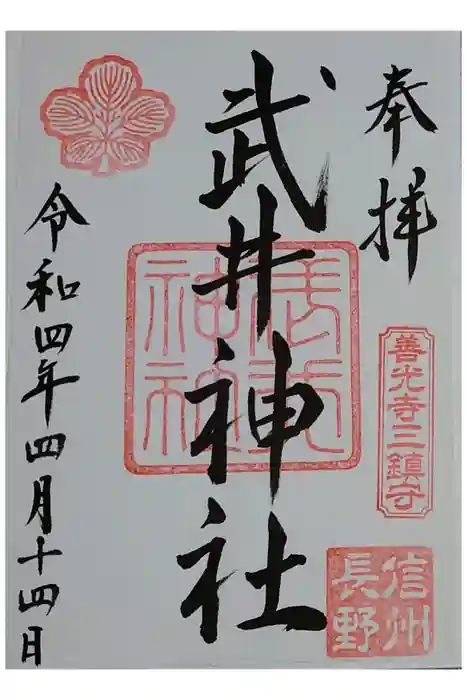 奉拝
善光寺三鎮守
信州
長野
武井神社
武井
神社
令和四年四月十四日